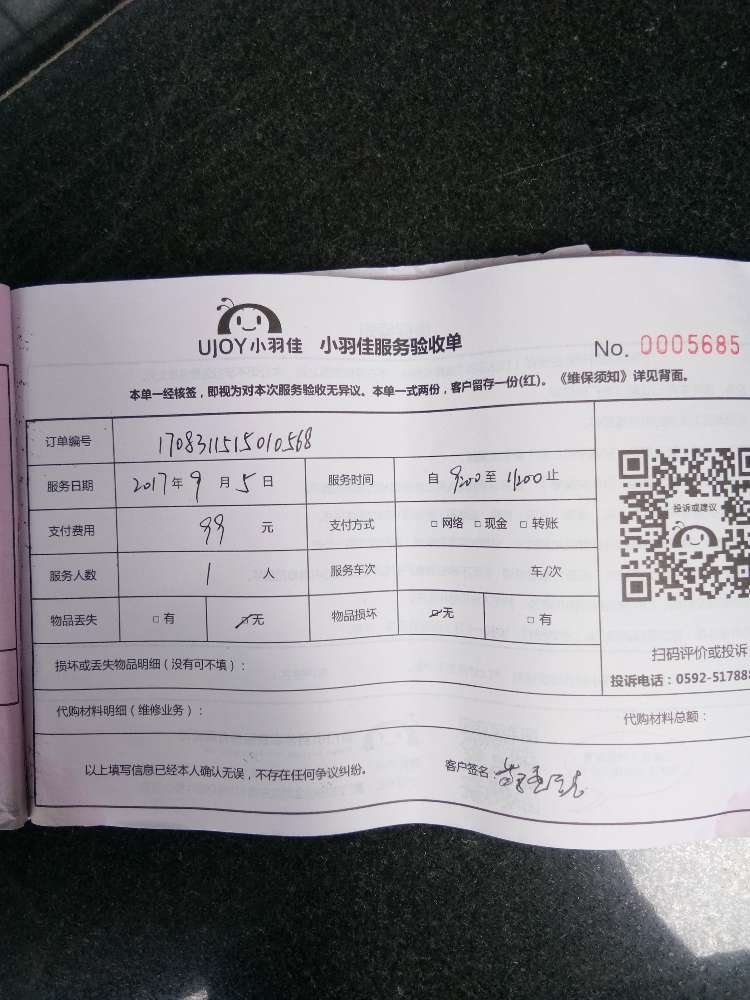 UJOY小羽佳 小羽佳服务验收单
No. 0005685
本单一经核签，即视为对本次服务验收无异议。本单一式两份，客户留存一份(红)。《维保须知》详见背面。
订单编号 1708311515010568
服务日期 2017年9月5日 服务时间 自9:00至11:00止
支付费用 99元 支付方式 □网络 □现金 □转账
服务人数 1人 服务车次 车/次
物品丢失 □有 ☑无 物品损坏 ☑无 □有
投诉或建议
扫码评价或投诉
投诉电话：0592-51788
损坏或丢失物品明细（没有可不填）：
代购材料明细（维修业务）： 代购材料总额：
以上填写信息已经本人确认无误，不存在任何争议纠纷。 客户签名：